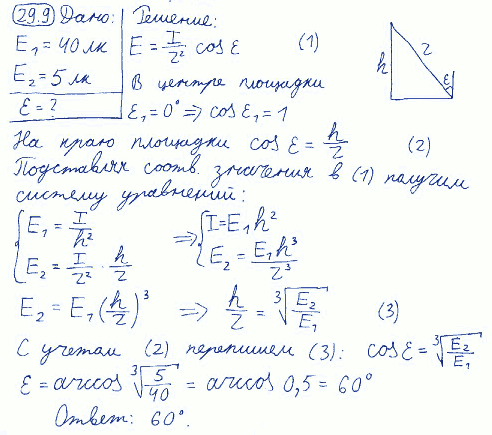 29.9 Дано: Решение:
E₁ = 40 лк E = I/r² cos ε (1)
E₂ = 5 лк В центре площадки
ε = ? ε₁ = 0° ⇒ cos ε₁ = 1
h r ε
На краю площадки cos ε = h/r (2)
Подставляя соотв. значения в (1) получим
систему уравнений:
{ E₁ = I/h² ⇒ { I = E₁h²
E₂ = I/r² · h/r E₂ = E₁h³/r³
E₂ = E₁(h/r)³ ⇒ h/r = ³√(E₂/E₁) (3)
С учетом (2) перепишем (3): cos ε = ³√(E₂/E₁)
ε = arccos ³√(5/40) = arccos 0,5 = 60°
Ответ: 60°.